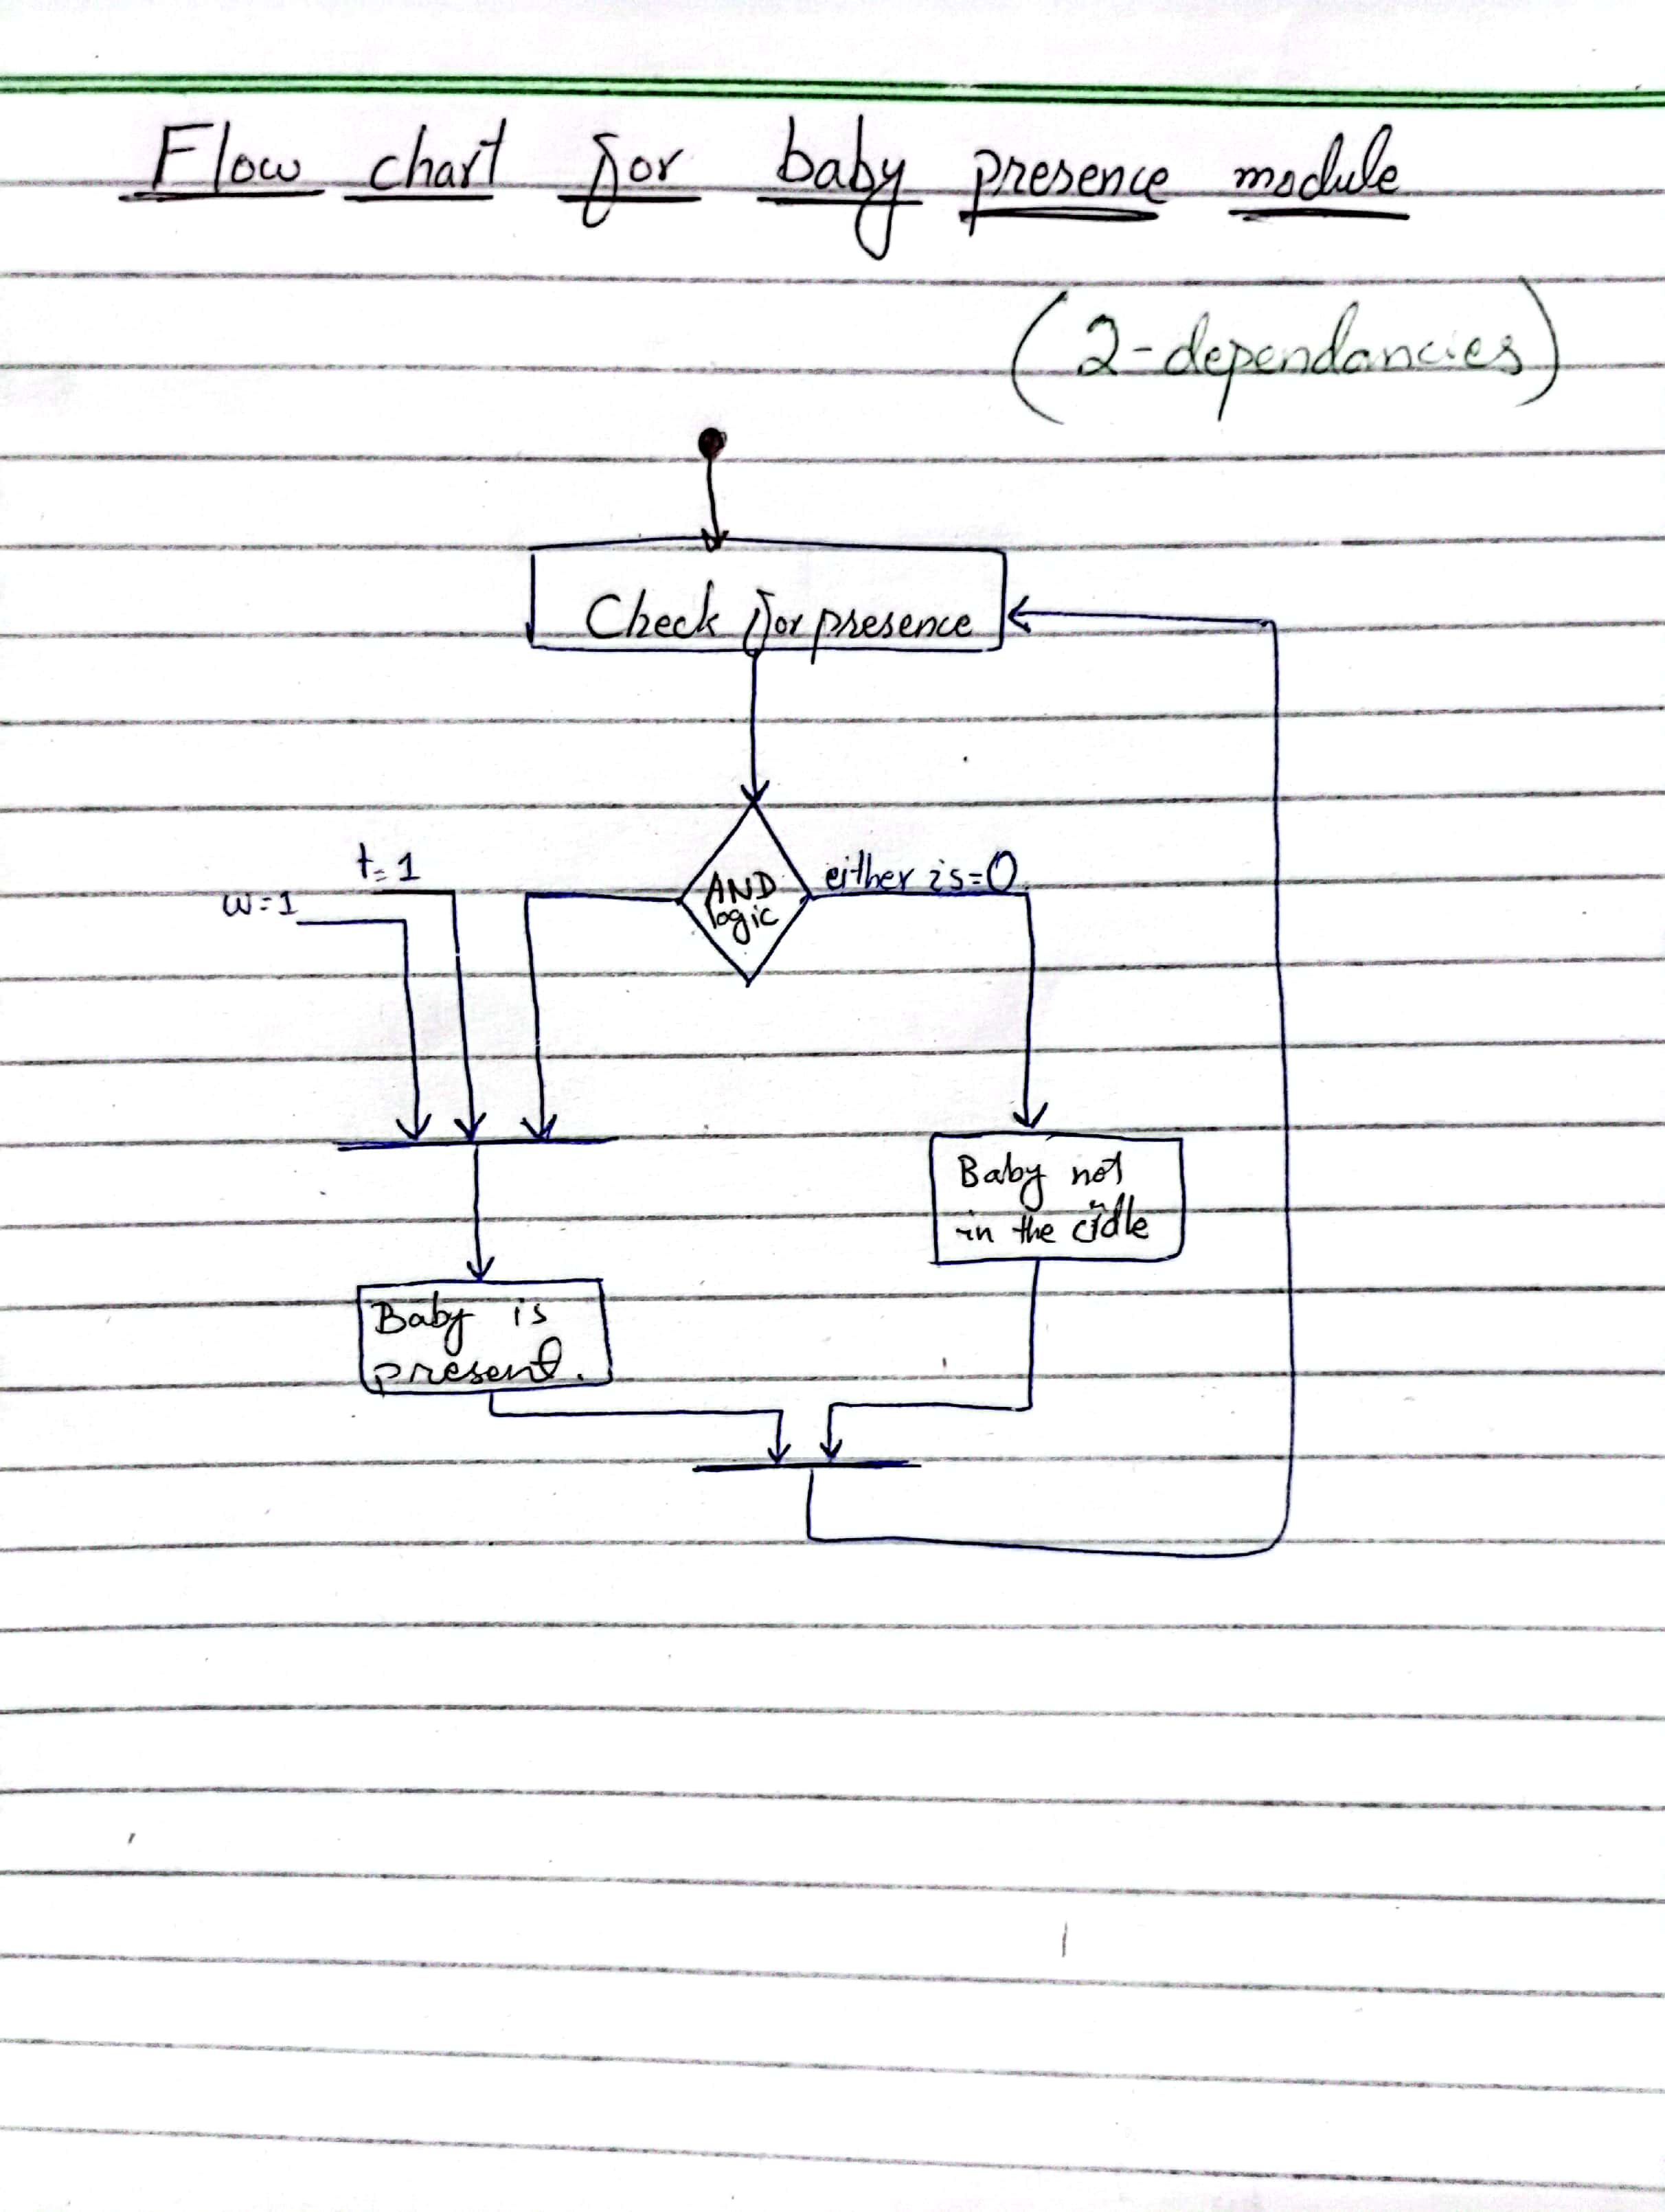 Flow chart for baby presence module
(2-dependancies)
Check for presence
t=1
w=1
AND
logic
either is=0
Baby not
in the
Baby is
present.